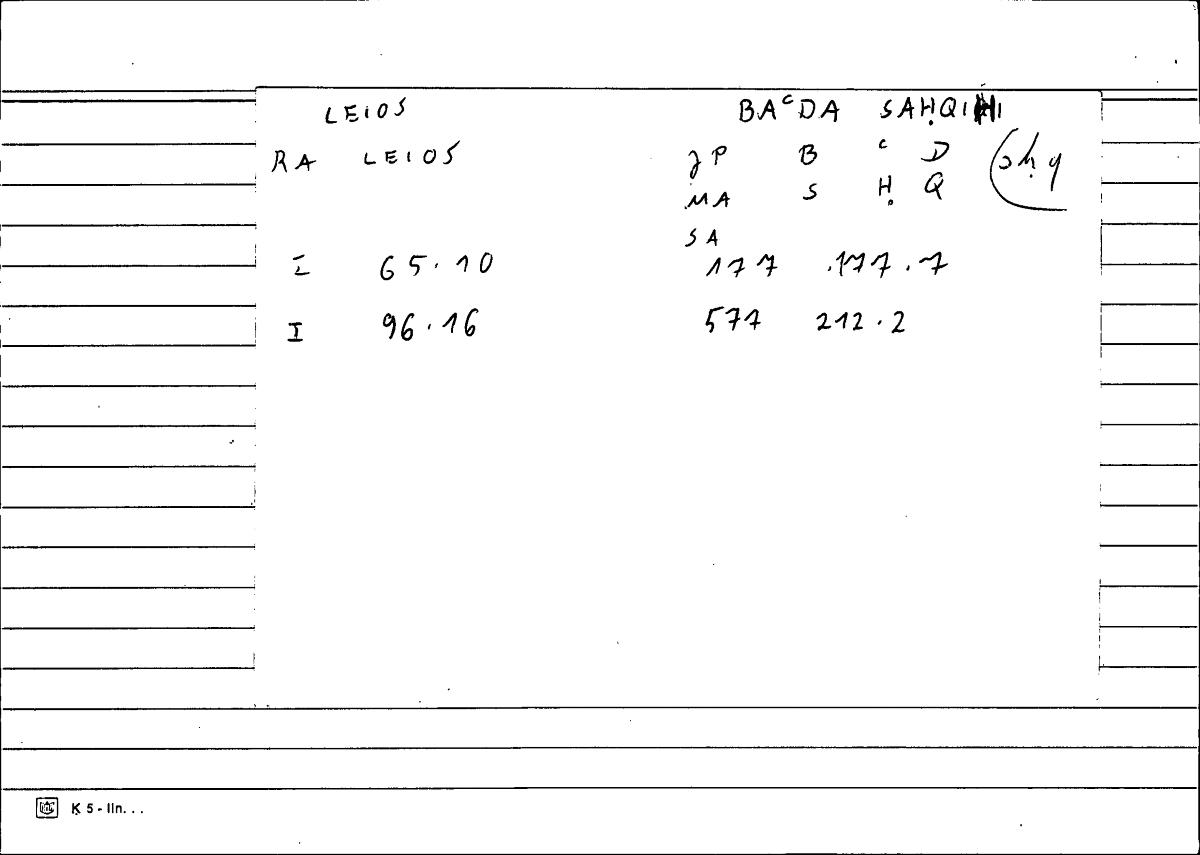 LEIOS BAᶜDA SAḤQI
RA LEIOS JP B ᶜ D sḥq
MA S Ḥ Q
SA
I 65.10 177 .177.7
I 96.16 577 212.2
K 5 - lin...